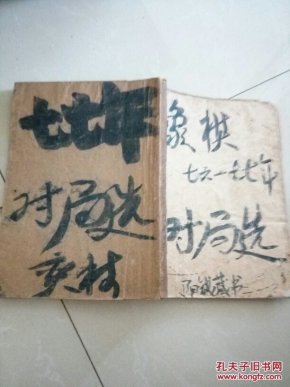 七七年
对局选
象棋
七六—七七年
对局选
藏书
孔夫子旧书网